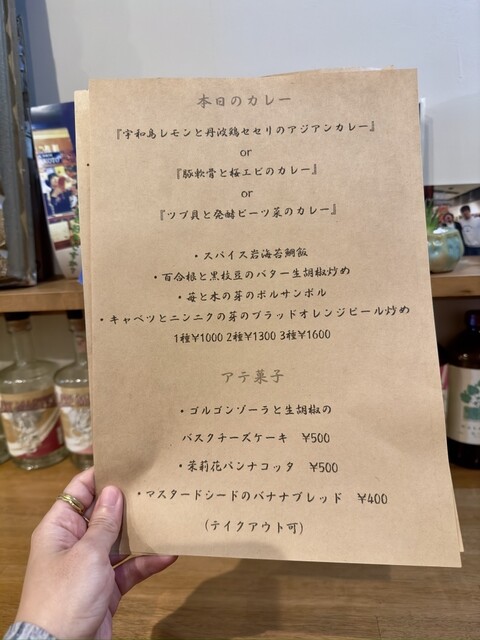 本日のカレー
『宇和島レモンと丹波鶏セセリのアジアンカレー』
or
『豚軟骨と桜エビのカレー』
or
『ツブ貝と発酵ビーツ菜のカレー』
・スパイス岩海苔鯛飯
・百合根と黒枝豆のバター生胡椒炒め
・苺と木の芽のポルサンボル
・キャベツとニンニクの芽のブラッドオレンジビール炒め
1種¥1000 2種¥1300 3種¥1600
アテ菓子
・ゴルゴンゾーラと生胡椒の
バスクチーズケーキ ¥500
・茉莉花パンナコッタ ¥500
・マスタードシードのバナナブレッド ¥400
(テイクアウト可)